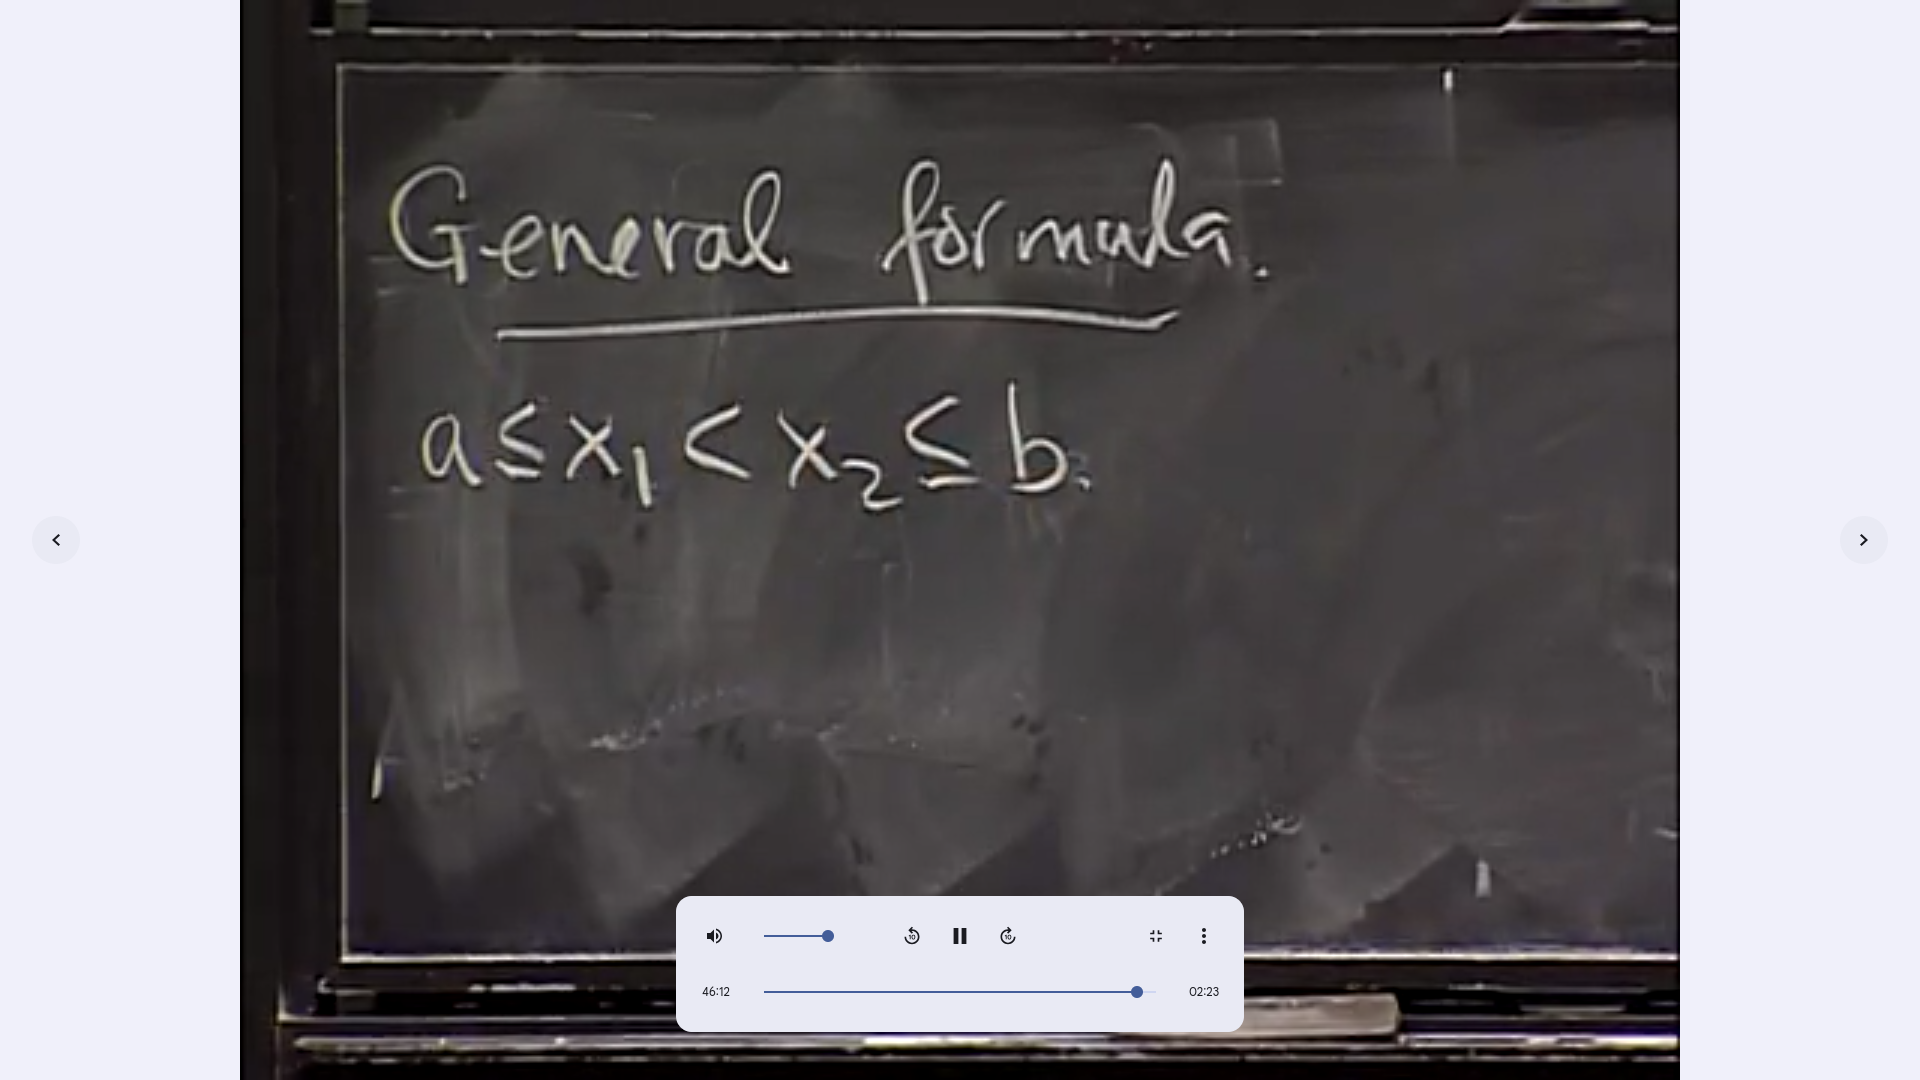 General formula.
a ≤ x₁ < x₂ ≤ b.
10
10
46:12
02:23